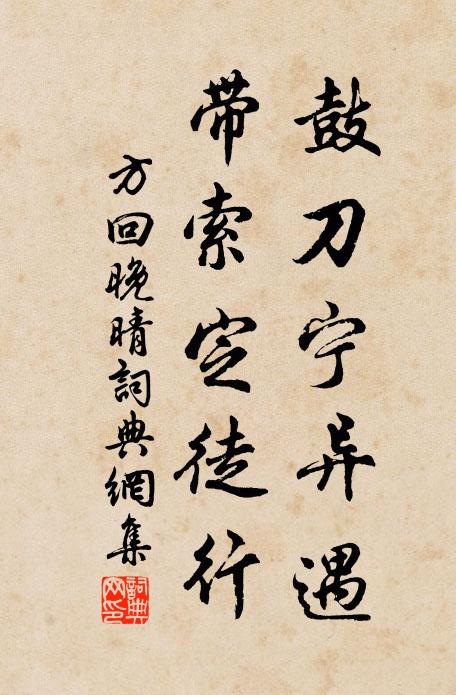 鼓刀宁异遇
带索定徒行
方回晚晴詞典網集
詞典網印